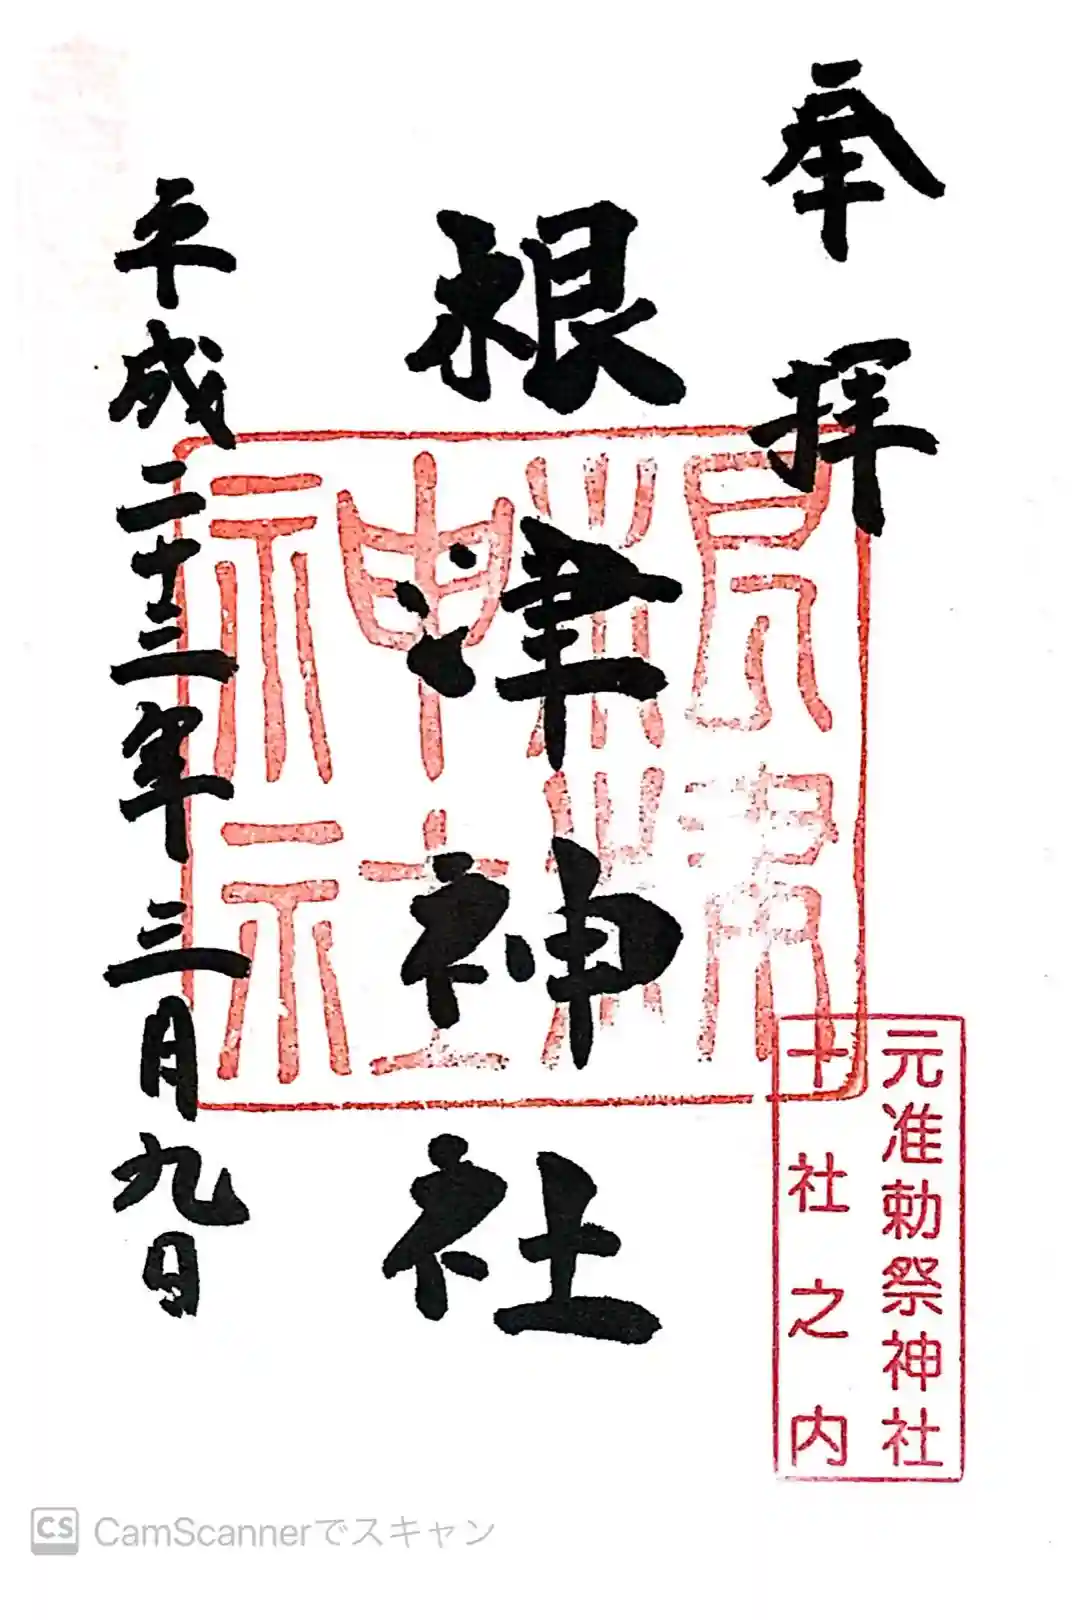 奉拝
根津神社
根津神社
元准勅祭神社
十社之内
平成二十三年三月九日
CS CamScannerでスキャン